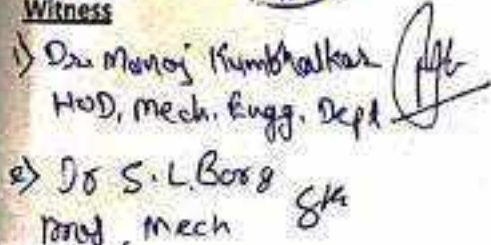 Witness
1) Dr. Manoj Kumbhalkar
HOD, Mech. Engg. Dept
2) Dr S. L. Borg
Prof, Mech